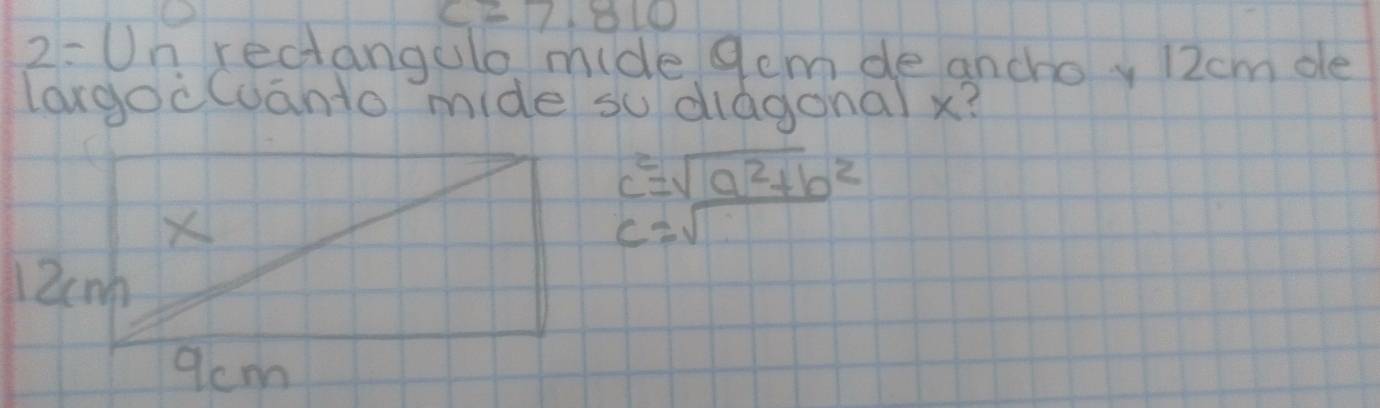 c=7.810
2=Un rectangulo mide 9cm de ancho y 12cm de
largo¿Cuánto mide su diagonal x?
c²=√a²+b²
c=√
x
12cm
9cm